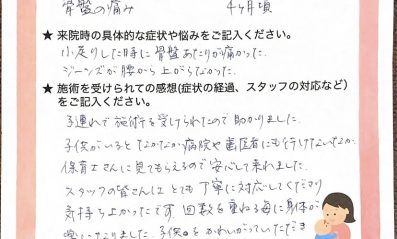 骨盤の痛み　4ヶ月頃
★ 来院時の具体的な症状や悩みをご記入ください。
小走りした時に骨盤あたりが痛かった。
ジーンズが腰から上がらなかった。
★ 施術を受けられての感想(症状の経過、スタッフの対応など)
をご記入ください。
子連れで施術を受けられたので助かりました。
子供がいるとなかなか病院や歯医者にも行けないなか
保育士さんに見てもらえるので安心して来れました。
スタッフの皆さんはとても丁寧に対応してくださり
気持ちよかったです。回数を重ねる毎に身体が
楽になりました。子供をかわいがっていただき